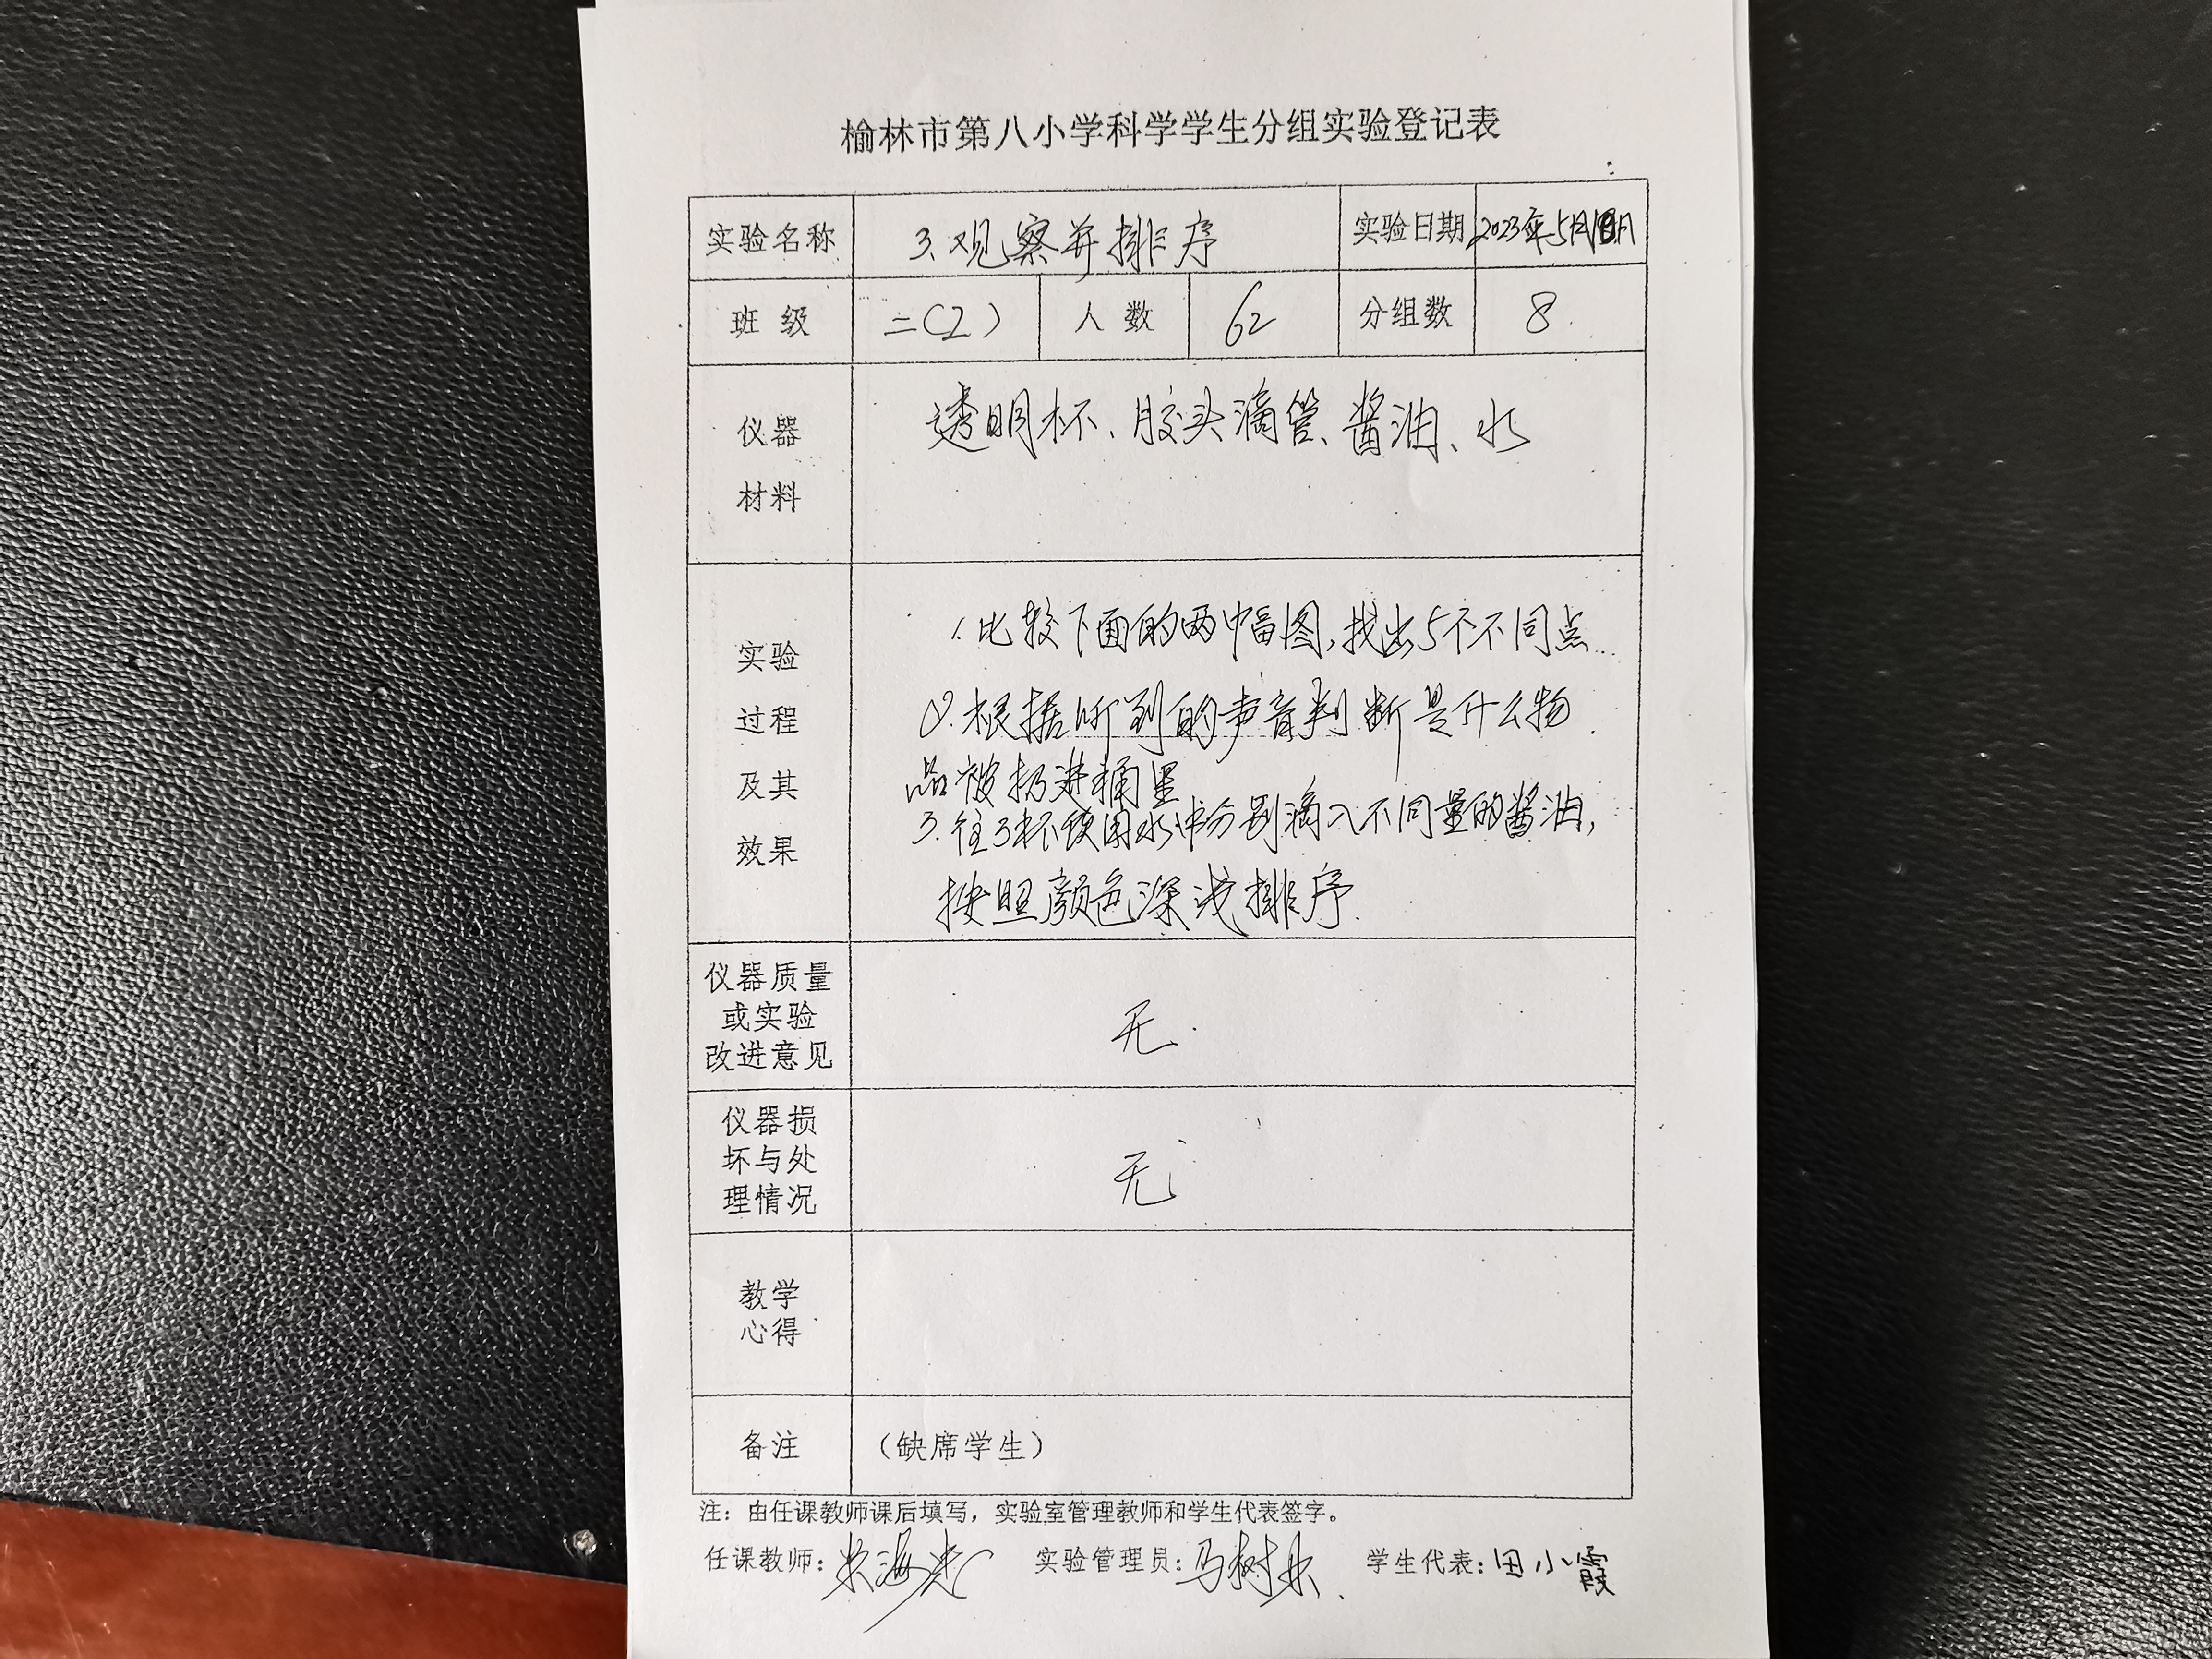 榆林市第八小学科学学生分组实验登记表
实验名称 3、观察并排序 实验日期 2023年5月
班级 二(2) 人数 62 分组数 8
仪器 透明杯、胶头滴管、酱油、水
材料
实验 1.比较下面的两幅图,找出5个不同点
过程 2.根据听到的声音判断是什么物
及其 品被扔进桶里
3.往3杯饮用水中分别滴入不同量的酱油,
效果
按照颜色深浅排序.
仪器质量
或实验 无.
改进意见
仪器损
坏与处 无
理情况
教学
心得
备注 (缺席学生)
注:由任课教师课后填写,实验室管理教师和学生代表签字。
任课教师: 实验管理员:马树 学生代表:田小霞